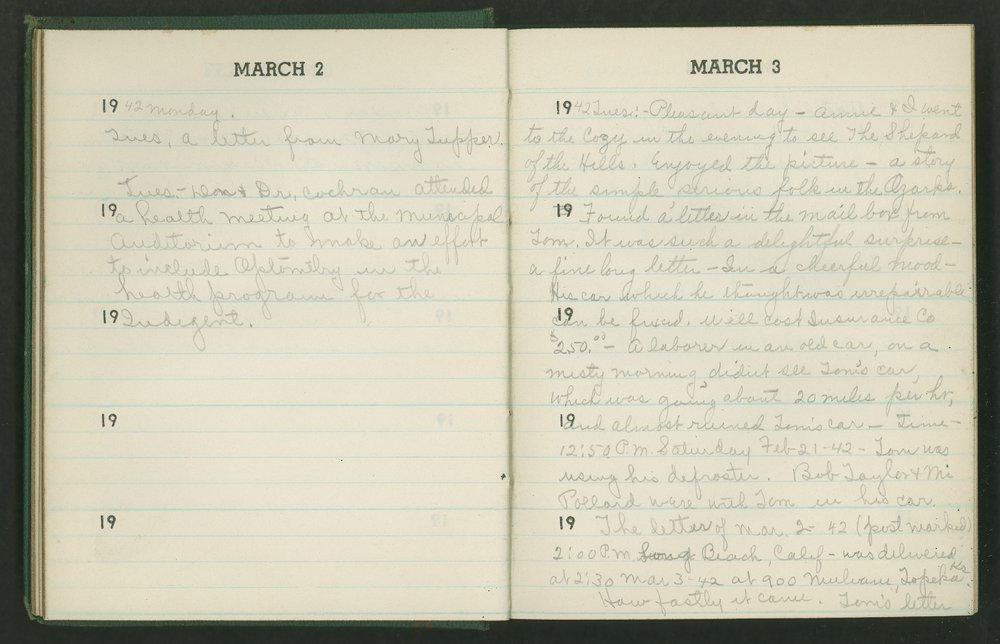 MARCH 2
1942 Monday.
Tues, a letter from Mary Tupper.
Tues- Don & Dr. Cochran attended
19 a health meeting at the Municipal
Auditorium to make an effort
to include Optomtry in the
health programe for the
19 Indigent.
19
19
MARCH 3
1942 Tues:- Pleasant day - Annie & I went
to the Cozy in the evening to see The Shepard
of the Hills. Enjoyed the picture - a story
of the simple serious folk in the Ozarks.
19 Found a letter in the mail box from
Tom. It was such a delightful surprise-
a fine long letter - In a cheerful mood-
His car which he thought was irrepairable
19 can be fixed. Will cost Insurance Co
$250.00 - A laborer in an old car, on a
misty morning, didn't see Tom's car,
which was going about 20 miles per hr,
19 and almost ruined Tom's car - Time-
12:50 P.M. Saturday Feb-21-42 - Tom was
using his defroster. Bob Taylor & Mr
Pollard were with Tom in his car.
19 The letter of Mar. 2- 42 (post marked)
2:00 P.M. Long Beach, Calif - was delivered
at 2:30 Mar 3-42 at 900 Mulvane, Topeka Ks.
How fastly it came. Tom's letter